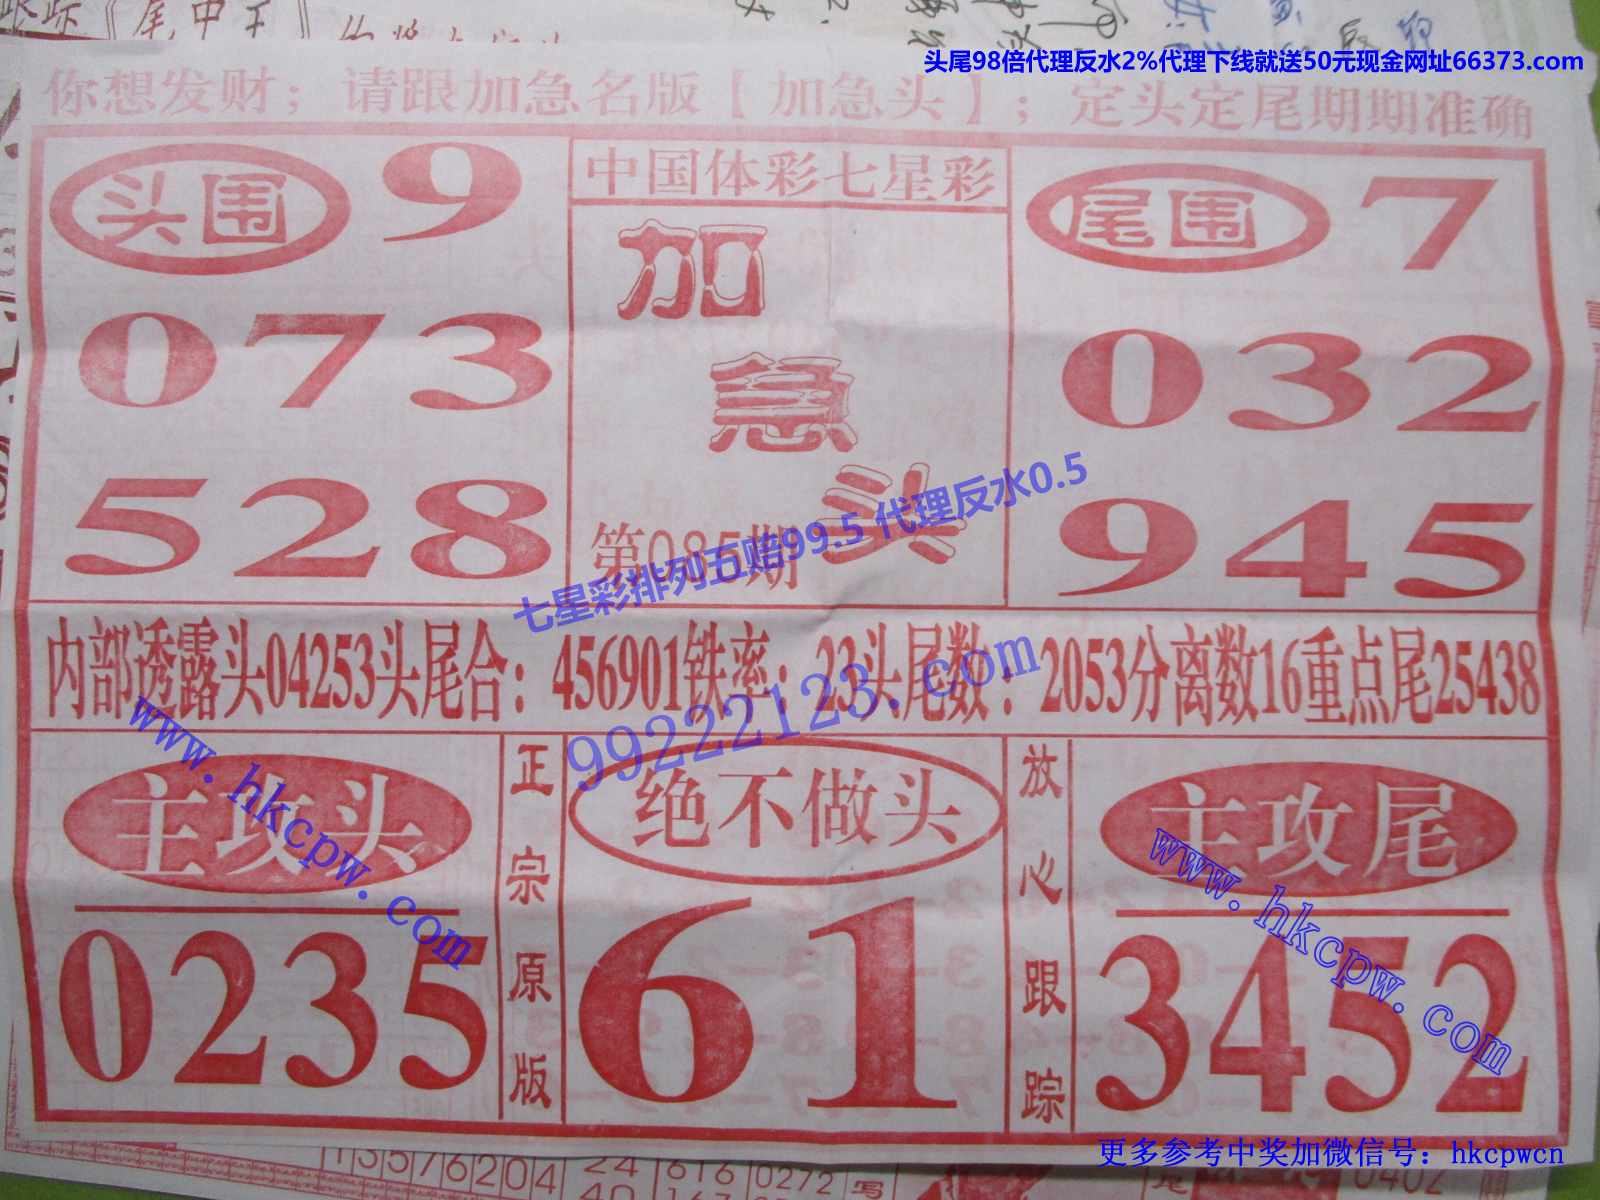 跟踪《尾中王》
头尾98倍代理反水2%代理下线就送50元现金网址66373.com
你想发财；请跟加急名版【加急头】；定头定尾期期准确
头围 9
073
528
中国体彩七星彩
加
急
头
第085期
尾围 7
032
945
七星彩排列五赔99.5 代理反水0.5
内部透露头04253头尾合：456901铁率：23头尾数：2053分离数16重点尾25438
99222123.com
www.hkcpw.com
主攻头
0235
正宗原版
绝不做头
61
放心跟踪
主攻尾
3452
www.hkcpw.com
更多参考中奖加微信号：hkcpwcn
13576204 24 616 0272 写
0402